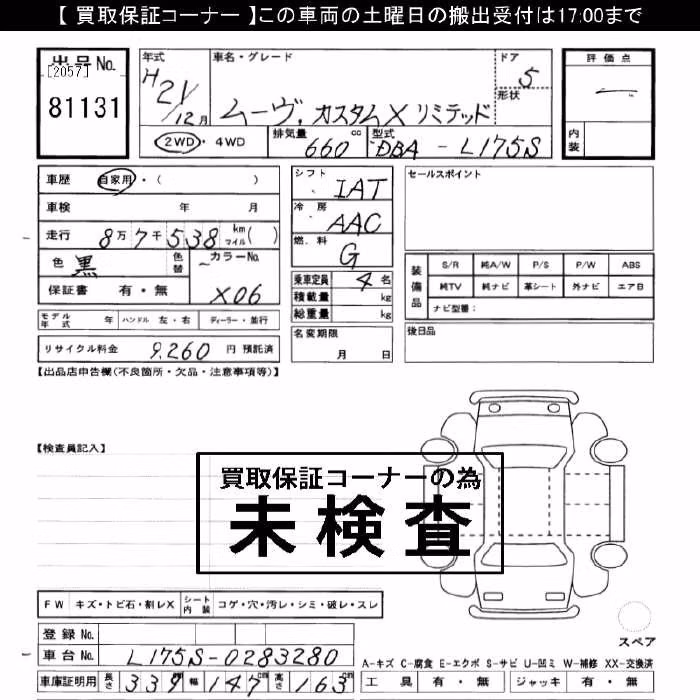 【 買取保証コーナー 】この車両の土曜日の搬出受付は17:00まで
出品No.
[2057]
81131
年式
H21/12月
車名・グレード
ムーヴ、カスタムX リミテッド
ドア
5
形状
2WD・4WD
排気量
660 cc
型式
DBA - L175S
評価点
内装
車歴 自家用・( )
車検 年 月
走行 8万7千538 km マイル( )
色 黒 色替 カラーNo. X06
保証書 有・無
モデル年式 年 ハンドル 左・右 ディーラー・並行
リサイクル料金 9,260 円 預託済
シフト IAT
冷房 AAC
燃料 G
乗車定員 4 名
積載量 kg
総重量 kg
名変期限
月 日
セールスポイント
装備品
S/R 純A/W P/S P/W ABS
純TV 純ナビ 革シート 外ナビ エアB
ナビ型番:
後日品
【出品店申告欄(不良箇所・欠品・注意事項等)】
【検査員記入】
買取保証コーナーの為
未検査
FW キズ・トビ石・割レX シート内装 コゲ・穴・汚レ・シミ・破レ・スレ
登録No.
車台No. L175S-0283280
車庫証明用 長さ 339 cm 幅 147 cm 高さ 163 cm
スペア
A-キズ C-腐食 E-エクボ S-サビ U-凹ミ W-補修 XX-交換済
工具 有・無 ジャッキ 有・無